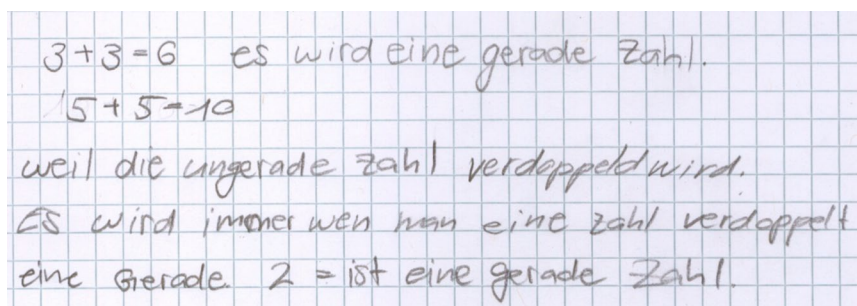 3+3=6 es wird eine gerade Zahl.
5+5=10
weil die ungerade zahl verdoppeld wird.
Es wird immer wen man eine zahl verdoppelt
eine Gerade. 2 = ist eine gerade Zahl.